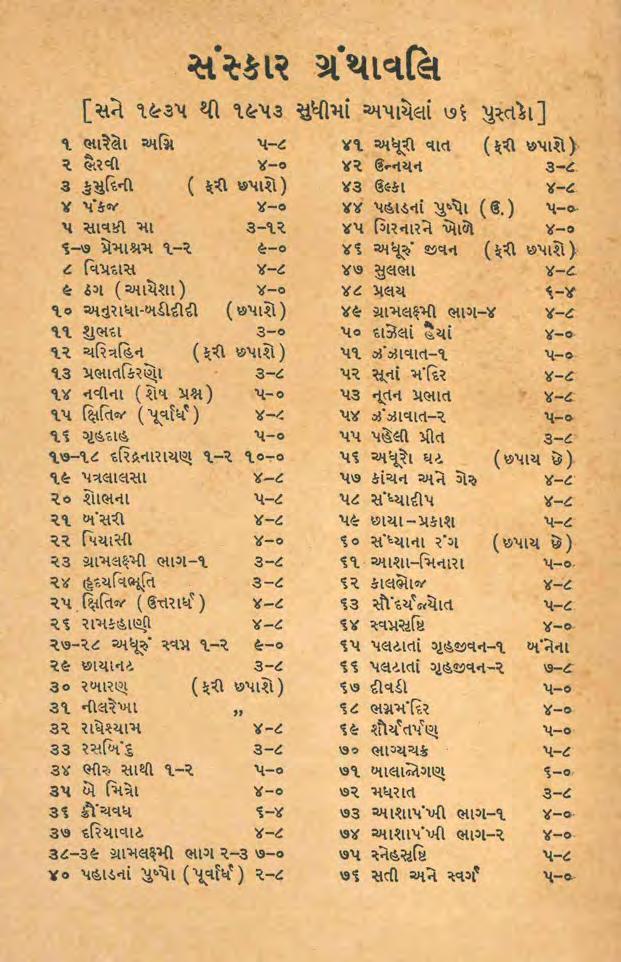 સંસ્કાર ગ્રંથાવલિ
[સને ૧૯૩૫ થી ૧૯૫૩ સુધીમાં અપાયેલાં ૭૬ પુસ્તકો]
૧ ભારેલો અગ્નિ ૫-૮
૨ ભૈરવી ૪-૦
૩ કુમુદિની ( ફરી છપાશે )
૪ પંકજ ૪-૦
૫ સાવકી મા ૩-૧૨
૬-૭ પ્રેમાશ્રમ ૧-૨ ૯-૦
૮ વિપ્રદાસ ૪-૮
૯ ઠગ ( આયેશા ) ૪-૦
૧૦ અનુરાધા-બડીદીદી ( છપાશે )
૧૧ શુભદા ૩-૦
૧૨ ચરિત્રહિન ( ફરી છપાશે )
૧૩ પ્રભાતકિરણો ૩-૮
૧૪ નવીના ( શેષ પ્રશ્ન ) ૫-૦
૧૫ ક્ષિતિજ ( પૂર્વાર્ધ ) ૪-૮
૧૬ ગૃહદાહ ૫-૦
૧૭-૧૮ દરિદ્રનારાયણ ૧-૨ ૧૦-૦
૧૯ પત્રલાલસા ૪-૮
૨૦ શોભના ૫-૮
૨૧ બંસરી ૪-૮
૨૨ પિયાસી ૪-૦
૨૩ ગ્રામલક્ષ્મી ભાગ-૧ ૩-૮
૨૪ હૃદયવિભૂતિ ૩-૮
૨૫ ક્ષિતિજ ( ઉત્તરાર્ધ ) ૪-૮
૨૬ રામકહાણી ૪-૮
૨૭-૨૮ અધૂરું સ્વપ્ન ૧-૨ ૯-૦
૨૯ છાયાનટ ૩-૮
૩૦ રખારણ ( ફરી છપાશે )
૩૧ નીલરેખા ,,
૩૨ રાધેશ્યામ ૪-૮
૩૩ રસબિંદુ ૩-૮
૩૪ ભીરુ સાથી ૧-૨ ૫-૦
૩૫ બે મિત્રો ૪-૦
૩૬ ક્રૌંચવધ ૬-૪
૩૭ દરિયાવાટ ૪-૮
૩૮-૩૯ ગ્રામલક્ષ્મી ભાગ ૨-૩ ૭-૦
૪૦ પહાડનાં પુષ્પો ( પૂર્વાર્ધ ) ૨-૮
૪૧ અધૂરી વાત ( ફરી છપાશે )
૪૨ ઉન્નયન ૩-૮
૪૩ ઉલ્કા ૪-૮
૪૪ પહાડનાં પુષ્પો ( ઉ. ) ૫-૦
૪૫ ગિરનારને ખોળે ૪-૦
૪૬ અધૂરું જીવન ( ફરી છપાશે )
૪૭ સુલભા ૪-૮
૪૮ પ્રલય ૬-૪
૪૯ ગ્રામલક્ષ્મી ભાગ-૪ ૪-૮
૫૦ દાઝેલાં હૈયાં ૪-૦
૫૧ ઝંઝાવાત-૧ ૫-૦
૫૨ સૂનાં મંદિર ૪-૮
૫૩ નૂતન પ્રભાત ૪-૮
૫૪ ઝંઝાવાત-૨ ૫-૦
૫૫ પહેલી પ્રીત ૩-૮
૫૬ અધૂરો ઘટ ( છપાય છે )
૫૭ કાંચન અને ગેરુ ૪-૮
૫૮ સંધ્યાદીપ ૪-૮
૫૯ છાયા-પ્રકાશ ૫-૮
૬૦ સંધ્યાના રંગ ( છપાય છે )
૬૧ આશા-મિનારા ૫-૦
૬૨ કાલભોજ ૪-૮
૬૩ સૌંદર્યજ્યોત ૫-૮
૬૪ સ્વપ્નસૃષ્ટિ ૪-૦
૬૫ પલટાતાં ગૃહજીવન-૧ બંનેના
૬૬ પલટાતાં ગૃહજીવન-૨ ૭-૮
૬૭ દીવડી ૫-૦
૬૮ ભગ્નમંદિર ૪-૦
૬૯ શૌર્યતર્પણ ૫-૦
૭૦ ભાગ્યચક્ર ૫-૮
૭૧ બાલાજોગણ ૬-૦
૭૨ મધરાત ૩-૮
૭૩ આશાપંખી ભાગ-૧ ૪-૦
૭૪ આશાપંખી ભાગ-૨ ૪-૦
૭૫ સ્નેહસૃષ્ટિ ૫-૮
૭૬ સતી અને સ્વર્ગ ૫-૦